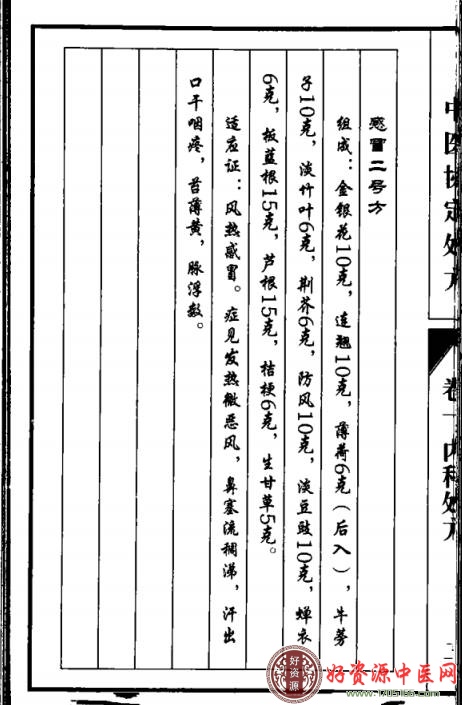 中医协定处方
卷一内科处方
感冒二号方
组成：金银花10克，连翘10克，薄荷6克（后入），牛蒡
子10克，淡竹叶6克，荆芥6克，防风10克，淡豆豉10克，蝉衣
6克，板蓝根15克，芦根15克，桔梗6克，生甘草5克。
适应证：风热感冒。症见发热微恶风，鼻塞流稠涕，汗出
口干咽疼，苔薄黄，脉浮数。
好资源
好资源中医网